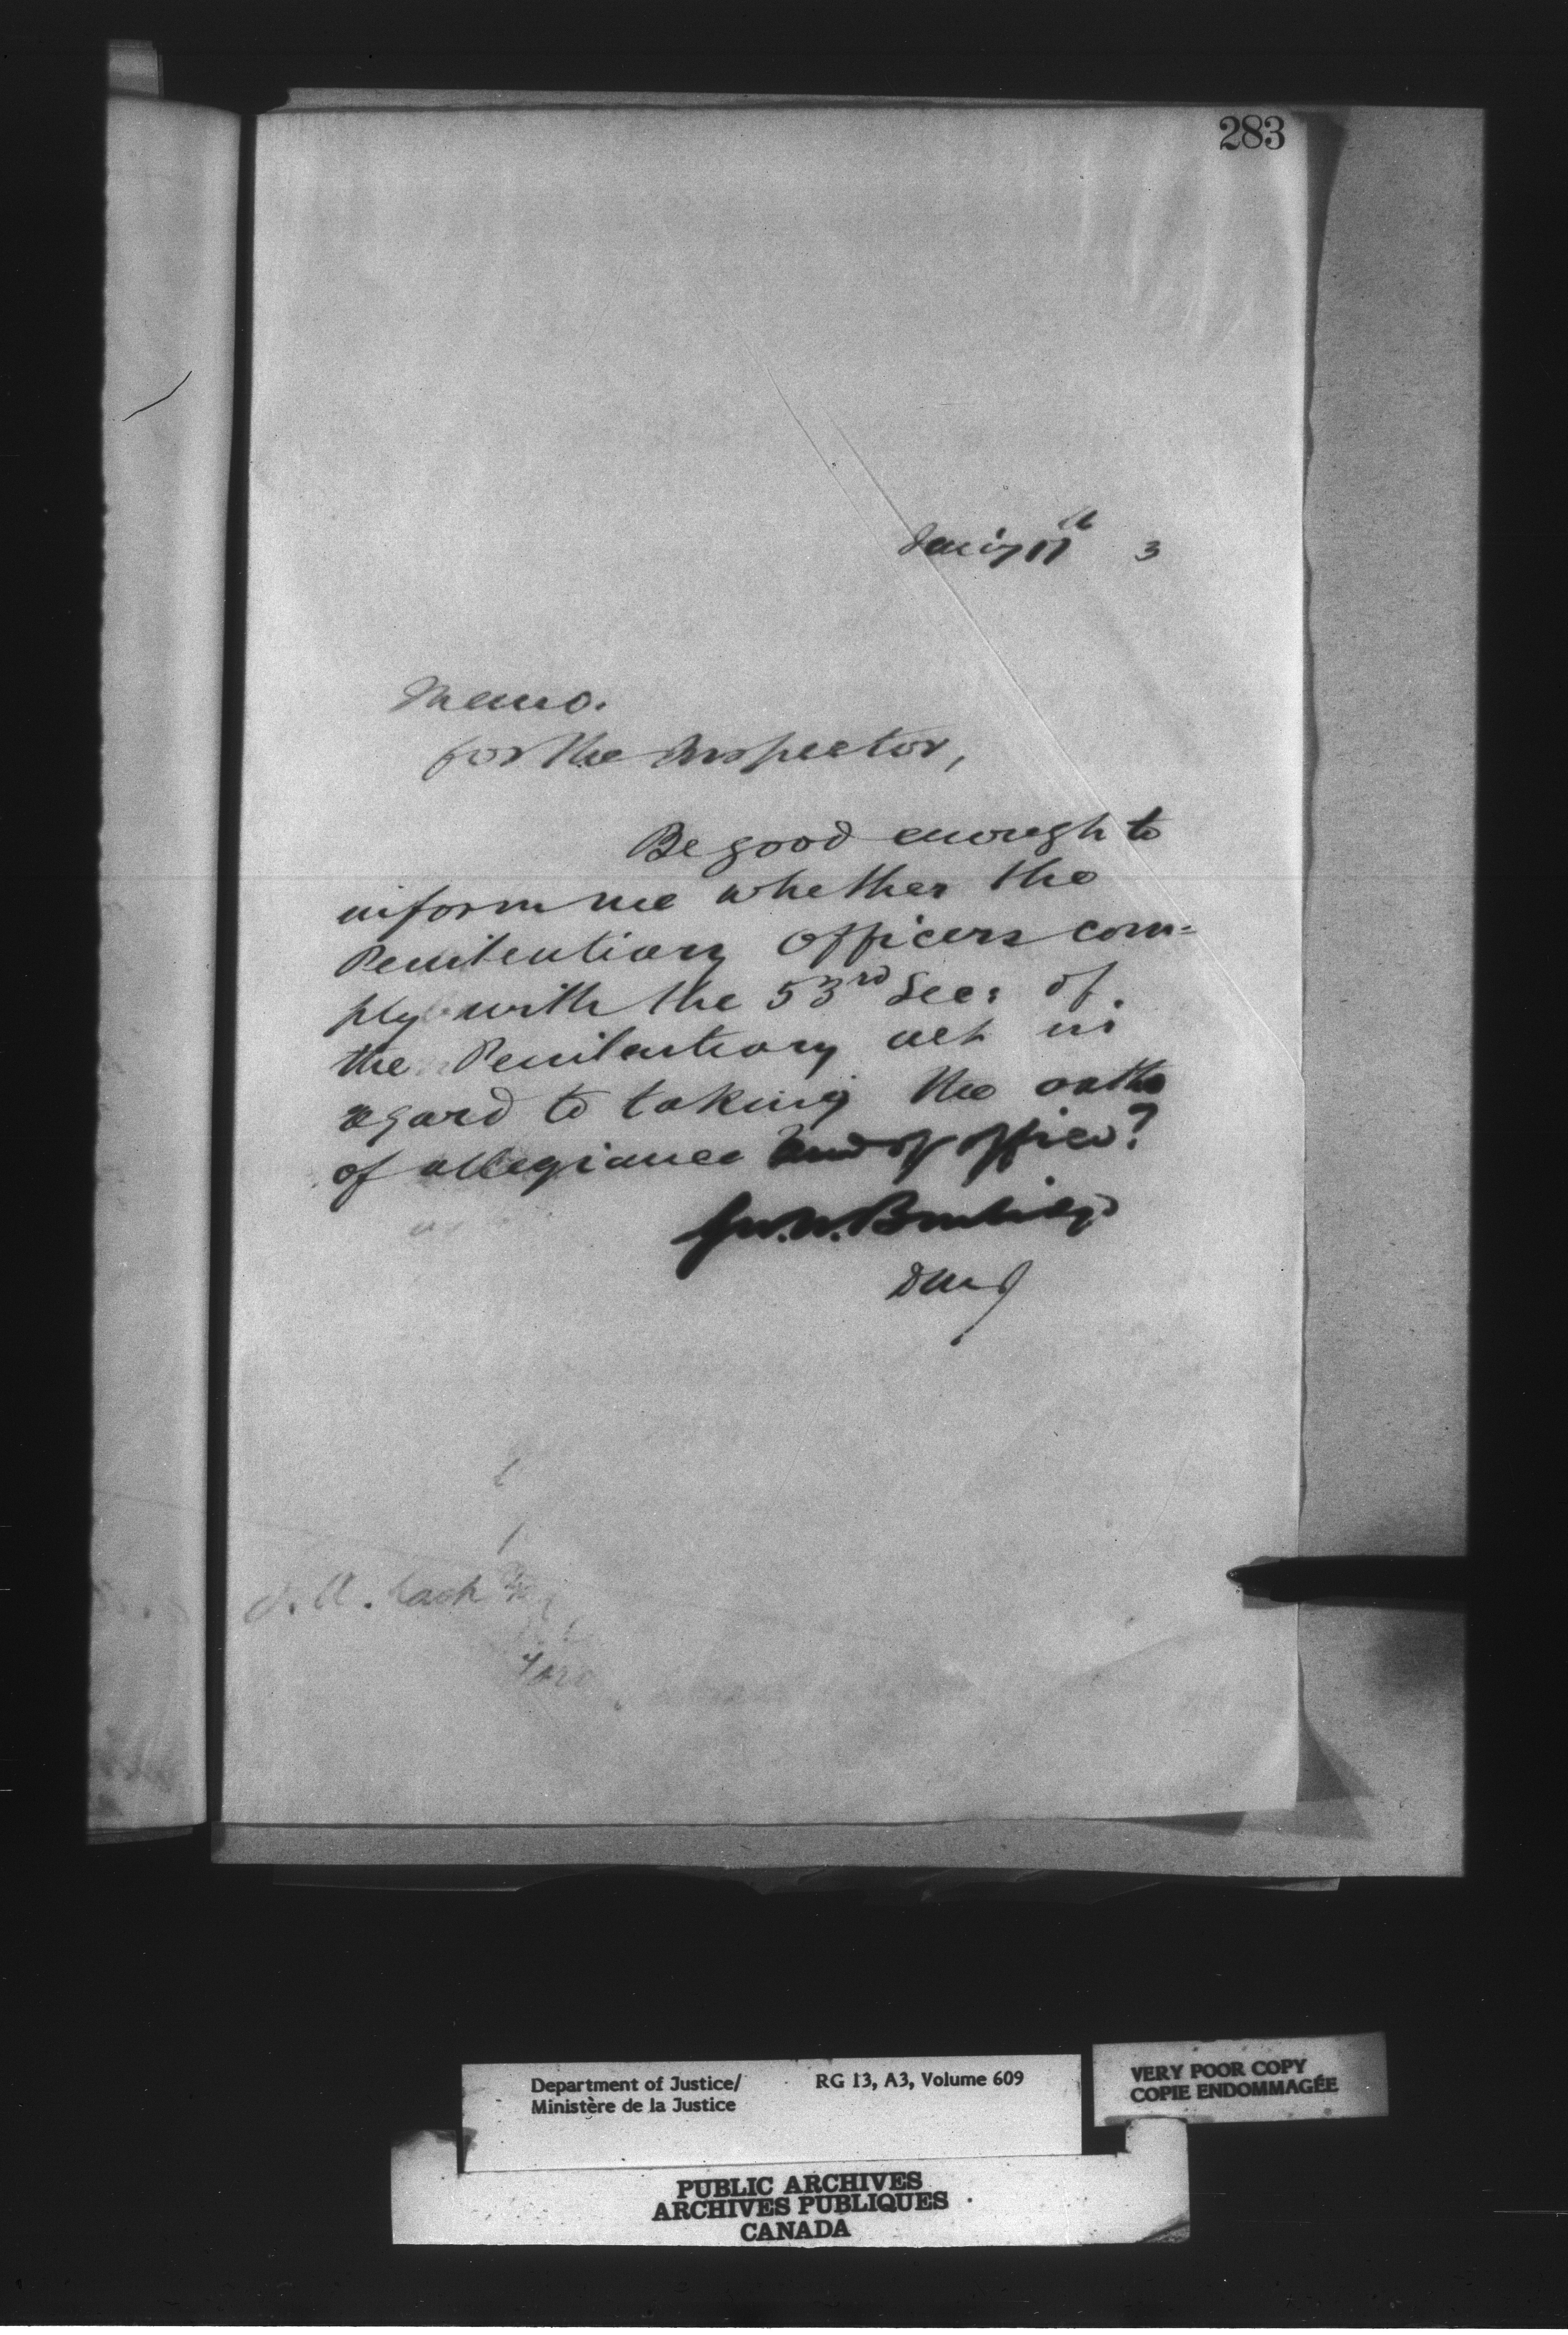 283
Jan'y 17th 3
Memo.
for the Inspector,
Be good enough to
inform me whether the
Penitentiary Officers com=
ply with the 53rd Sec: of
the Penitentiary act in
regard to taking the oaths
of allegiance and of office?
Geo. W. Burbidge
DMJ
Department of Justice/
Ministère de la Justice
RG 13, A3, Volume 609
VERY POOR COPY
COPIE ENDOMMAGÉE
PUBLIC ARCHIVES
ARCHIVES PUBLIQUES
CANADA